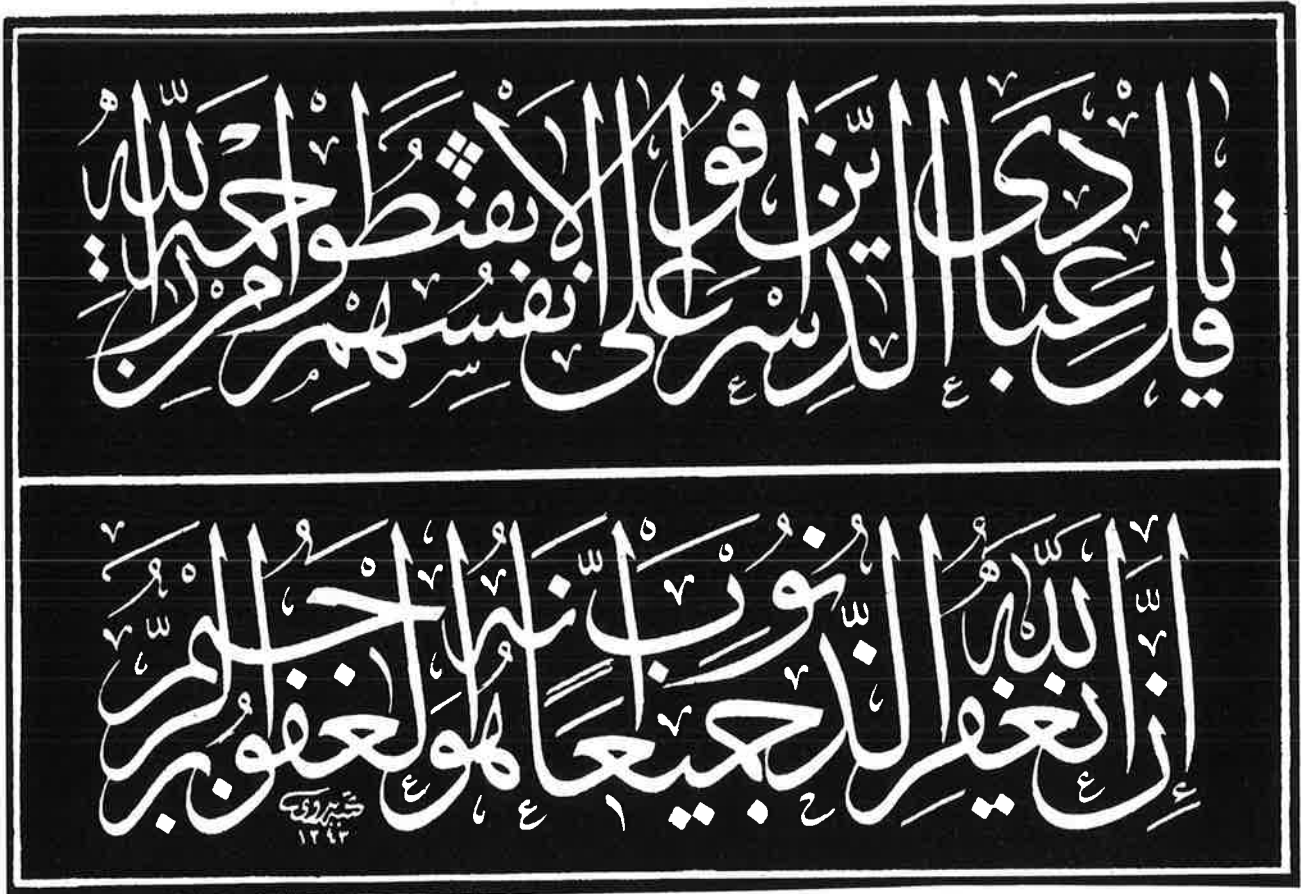 قُلْ يَا عِبَادِيَ الَّذِينَ أَسْرَفُوا عَلَى أَنْفُسِهِمْ لَا تَقْنَطُوا مِنْ رَحْمَةِ اللَّهِ
إِنَّ اللَّهَ يَغْفِرُ الذُّنُوبَ جَمِيعًا إِنَّهُ هُوَ الْغَفُورُ الرَّحِيمُ
١٣٤٣